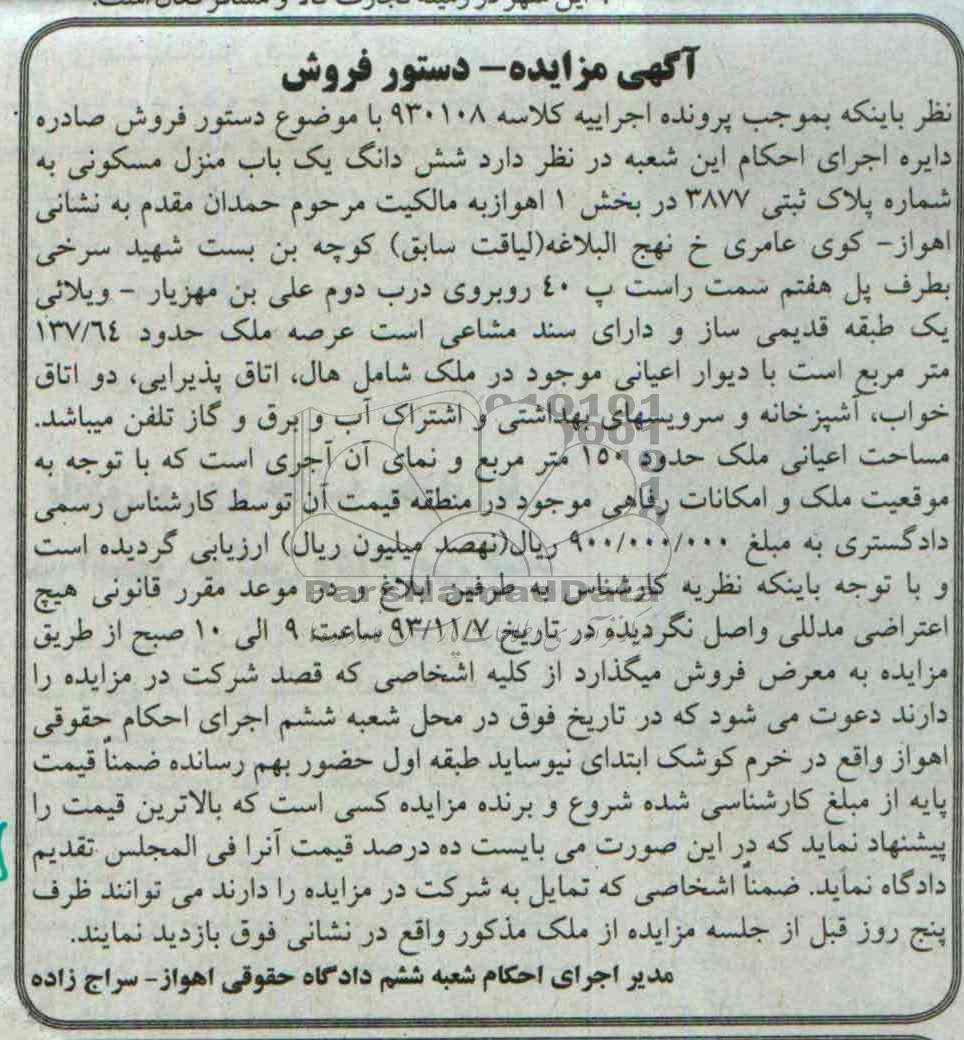 آگهی مزایده- دستور فروش
نظر باینکه بموجب پرونده اجراییه کلاسه ۹۳۰۱۰۸ با موضوع دستور فروش صادره
دایره اجرای احکام این شعبه در نظر دارد شش دانگ یک باب منزل مسکونی به
شماره پلاک ثبتی ۳۸۷۷ در بخش ۱ اهوازبه مالکیت مرحوم حمدان مقدم به نشانی
اهواز- کوی عامری خ نهج البلاغه(لیاقت سابق) کوچه بن بست شهید سرخی
بطرف پل هفتم سمت راست پ ٤٠ روبروی درب دوم علی بن مهزیار - ویلائی
یک طبقه قدیمی ساز و دارای سند مشاعی است عرصه ملک حدود ۱۳۷/٦٤
متر مربع است با دیوار اعیانی موجود در ملک شامل هال، اتاق پذیرایی، دو اتاق
خواب، آشپزخانه و سرویسهای بهداشتی و اشتراک آب و برق و گاز تلفن میباشد.
مساحت اعیانی ملک حدود ۱۵۰ متر مربع و نمای آن آجری است که با توجه به
موقعیت ملک و امکانات رفاهی موجود در منطقه قیمت آن توسط کارشناس رسمی
دادگستری به مبلغ ۹۰۰/۰۰۰/۰۰۰ ریال(نهصد میلیون ریال) ارزیابی گردیده است
و با توجه باینکه نظریه کارشناس به طرفین ابلاغ و در موعد مقرر قانونی هیچ
اعتراضی مدللی واصل نگردیده در تاریخ ۹۳/۱۱/۷ ساعت ۹ الی ۱۰ صبح از طریق
مزایده به معرض فروش میگذارد از کلیه اشخاصی که قصد شرکت در مزایده را
دارند دعوت می شود که در تاریخ فوق در محل شعبه ششم اجرای احکام حقوقی
اهواز واقع در خرم کوشک ابتدای نیوساید طبقه اول حضور بهم رسانده ضمناً قیمت
پایه از مبلغ کارشناسی شده شروع و برنده مزایده کسی است که بالاترین قیمت را
پیشنهاد نماید که در این صورت می بایست ده درصد قیمت آنرا فی المجلس تقدیم
دادگاه نماید. ضمناً اشخاصی که تمایل به شرکت در مزایده را دارند می توانند ظرف
پنج روز قبل از جلسه مزایده از ملک مذکور واقع در نشانی فوق بازدید نمایند.
مدیر اجرای احکام شعبه ششم دادگاه حقوقی اهواز- سراج زاده
ParsNamadData